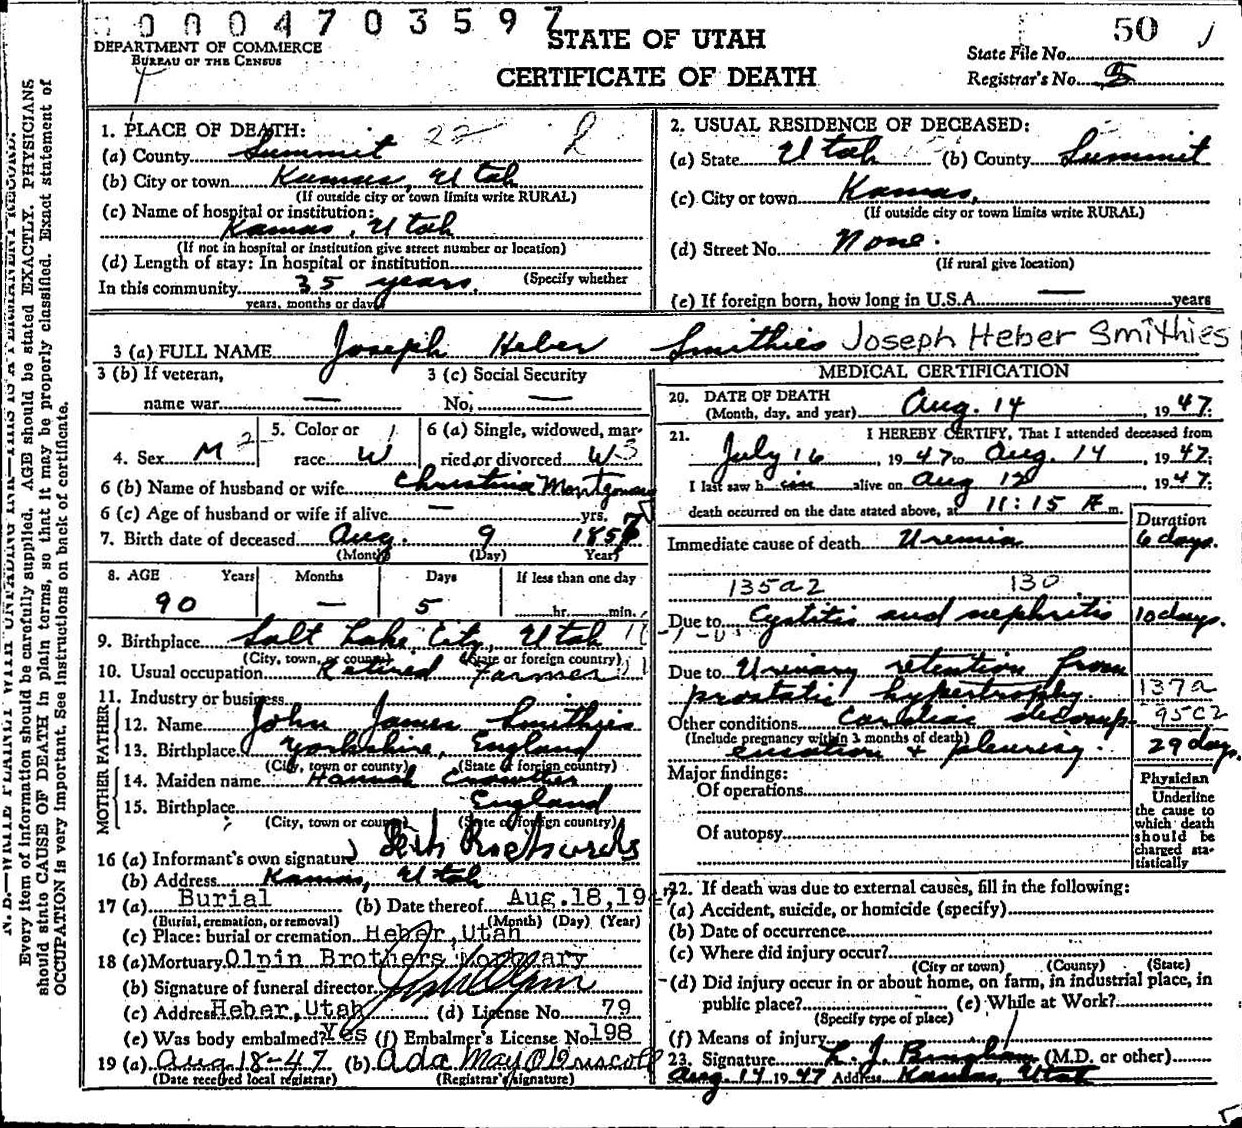 0004703597
DEPARTMENT OF COMMERCE
BUREAU OF THE CENSUS
STATE OF UTAH
CERTIFICATE OF DEATH
50
State File No.
Registrar's No. 5
1. PLACE OF DEATH: 22
(a) County Summit
(b) City or town Kamas, Utah
(If outside city or town limits write RURAL)
(c) Name of hospital or institution:
Kamas, Utah
(If not in hospital or institution give street number or location)
(d) Length of stay: In hospital or institution
(Specify whether
In this community 35 years.
years, months or days)
2. USUAL RESIDENCE OF DECEASED:
(a) State Utah (b) County Summit
(c) City or town Kamas,
(If outside city or town limits write RURAL)
(d) Street No. None.
(If rural give location)
(e) If foreign born, how long in U.S.A. — years
3 (a) FULL NAME Joseph Heber Smithies Joseph Heber Smithies
3 (b) If veteran, name war —
3 (c) Social Security No. —
4. Sex M 2
5. Color or race W 1
6 (a) Single, widowed, married or divorced W 3
6 (b) Name of husband or wife Christina Montgomery
6 (c) Age of husband or wife if alive — yrs.
7. Birth date of deceased Aug. 9 1857
(Month) (Day) (Year)
8. AGE Years Months Days If less than one day
90 — 5 hr. min.
9. Birthplace Salt Lake City, Utah
(City, town, or county) (State or foreign country)
10. Usual occupation Retired Farmer
11. Industry or business
FATHER
12. Name John James Smithies
13. Birthplace Yorkshire, England
(City, town or county) (State of foreign country)
MOTHER
14. Maiden name Hannah Crowther
15. Birthplace England
(City, town or county) (State of foreign country)
16 (a) Informant's own signature)
(b) Address Kamas, Utah
17 (a) Burial (b) Date thereof Aug.18,1947
(Burial, cremation, or removal) (Month) (Day) (Year)
(c) Place: burial or cremation Heber,Utah
18 (a) Mortuary Olpin Brothers Mortuary
(b) Signature of funeral director
(c) Address Heber,Utah (d) License No. 79
(e) Was body embalmed? Yes (f) Embalmer's License No. 198
19 (a) Aug 18-47 (b) Ada May O'Driscoll
(Date received local registrar) (Registrar's signature)
MEDICAL CERTIFICATION
20. DATE OF DEATH
(Month, day, and year) Aug. 14, 1947.
21. I HEREBY CERTIFY, That I attended deceased from
July 16, 1947 to Aug. 14, 1947;
I last saw him alive on Aug 12, 1947;
death occurred on the date stated above, at 11:15 A m.
Duration
Immediate cause of death Uremia 6 days.
135a2 130
Due to Cystitis and nephritis 10 days.
Due to Urinary retention from
prostatic hypertrophy. 137a
Other conditions Cardiac decomp- 95C2
(Include pregnancy within 3 months of death)
ensation & pleurisy. 29 days.
Major findings:
Of operations
Of autopsy
Physician
Underline
the cause to
which death
should be
charged sta-
tistically
22. If death was due to external causes, fill in the following:
(a) Accident, suicide, or homicide (specify)
(b) Date of occurrence
(c) Where did injury occur?
(City or town) (County) (State)
(d) Did injury occur in or about home, on farm, in industrial place, in
public place? (e) While at Work?
(Specify type of place)
(f) Means of injury
23. Signature L. J. Bingham (M.D. or other)
Aug. 14 1947 Address Kamas, Utah
N. B.—WRITE PLAINLY WITH UNFADING INK—THIS IS A PERMANENT RECORD.
Every item of information should be carefully supplied. AGE should be stated EXACTLY. PHYSICIANS
should state CAUSE OF DEATH in plain terms, so that it may be properly classified. Exact statement of
OCCUPATION is very important. See instructions on back of certificate.